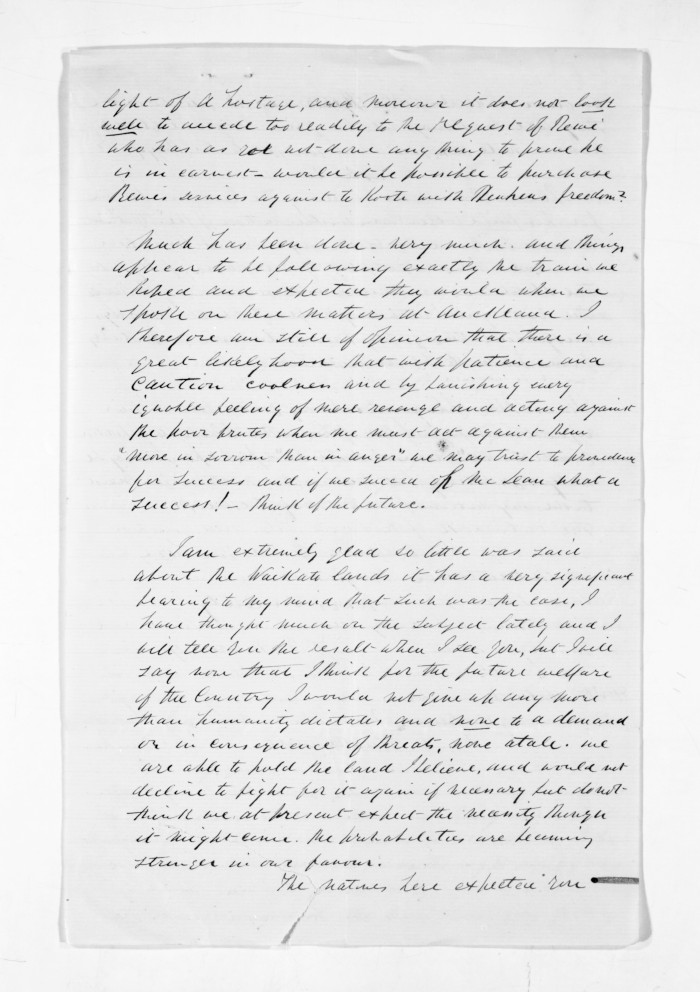 light of a hostage, and moreover it does not look
well to accede too readily to the request of Rewi
who has as yet not done anything to prove he
is in earnest - would it be possible to purchase
Rewi's services against te Kooti with Reuhens freedom?
Much has been done - very much. and things
appear to be following exactly the train we
hoped and expected they would when we
spoke on these matters at Auckland. I
therefore am still of opinion that there is a
great likelyhood that with patience and
caution coolness and by banishing every
ignoble feeling of mere revenge and acting against
the poor brutes when we must act against them
"more in sorrow than in anger" we may trust to providence
for success and if we succeed off the Scau what a
success! - think of the future.
I am extremely glad so little was said
about the Waikato lands it has a very significant
bearing to my mind that such was the case, I
have thought much on the subject lately and I
will tell you the result when I see you, but I will
say now that I think for the future welfare
of the Country I would not give up any more
than humanity dictates and none to a demand
or in consequence of threats, none atale. we
are able to hold the land I believe, and would not
decline to fight for it again if necessary but do not
think we at present expect the necessity though
it might come. the probabilities are becoming
stronger in our favour.
The natives here expected you